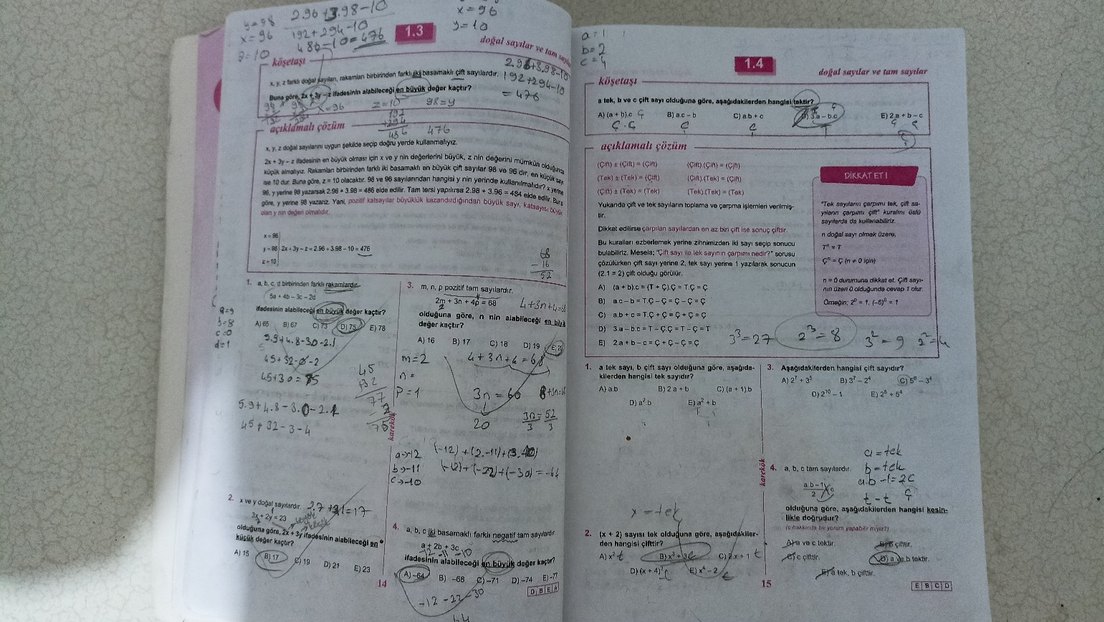 y=98 2.96+3.98-10
x=96 192+294-10
z=10 486-10=476
x=96
y=10
1.3
doğal sayılar ve tam sayılar
köşetaşı
x, y, z farklı doğal sayıları, rakamları birbirinden farklı iki basamaklı çift sayılardır.
Buna göre, 2x + 3y – z ifadesinin alabileceği en büyük değer kaçtır?
2.96+3.98-10
192+294-10
= 476
x=96
z=10 98=y
192
+294
486
476
açıklamalı çözüm
x, y, z doğal sayılarını uygun şekilde seçip doğru yerde kullanmalıyız.
2x + 3y – z ifadesinin en büyük olması için x ve y nin değerlerini büyük, z nin değerini mümkün olduğunca
küçük almalıyız. Rakamları birbirinden farklı iki basamaklı en büyük çift sayılar 98 ve 96 dır, en küçük sayı
ise 10 dur. Buna göre, z = 10 olacaktır. 98 ve 96 sayılarından hangisi y nin yerinde kullanılmalıdır? x yerine
96, y yerine 98 yazarsak 2.96 + 3.98 = 486 elde edilir. Tam tersi yapılırsa 2.98 + 3.96 = 484 elde edilir. Buna
göre, y yerine 98 yazarız. Yani, pozitif katsayılar büyüklük kazandırdığından büyük sayı, katsayısı büyük
olan y nin değeri olmalıdır.
x = 96
y = 98 2x + 3y – z = 2.96 + 3.98 – 10 = 476
z = 10
68
- 16
52
1. a, b, c, d birbirinden farklı rakamlardır.
5a + 4b – 3c – 2d
ifadesinin alabileceği en büyük değer kaçtır?
A) 65 B) 67 C) 73 D) 75 E) 78
a=9
b=8
c=0
d=1
5.9+4.8-3.0-2.1
45+32-0-2
45+30=85
45
+32
77
- 2
75
5.9+4.8-3.0-2.1
45+32-3-4
2. x ve y doğal sayılardır.
3x + 2y = 23
olduğuna göre, 2x + 3y ifadesinin alabileceği en
küçük değer kaçtır?
A) 15 B) 17 C) 19 D) 21 E) 23
karekök
3. m, n, p pozitif tam sayılardır.
2m + 3n + 4p = 68
olduğuna göre, n nin alabileceği en büyük
değer kaçtır?
A) 16 B) 17 C) 18 D) 19
m=2
n=
p=1
4+3n+4=68
3n=60
20
3n=52
3 3
a→-12
b→-11
c→-10
(-12)+(2.-11)+(3.-10)
(-12)+(-22)+(-30)=-64
4. a, b, c iki basamaklı farklı negatif tam sayılardır.
a + 2b + 3c
-12 -11 -10
ifadesinin alabileceği en büyük değer kaçtır?
A) –64 B) –68 C) –71 D) –74 E) –77
-12 -22 -30
D B E A
14
a=1
b=2
c=4
1.4
doğal sayılar ve tam sayılar
köşetaşı
a tek, b ve c çift sayı olduğuna göre, aşağıdakilerden hangisi tektir?
A) (a + b).c B) a.c – b C) a.b + c D) 3.a – b.c E) 2.a + b – c
Ç.Ç Ç Ç Ç
açıklamalı çözüm
(Çift) ± (Çift) = (Çift) (Çift).(Çift) = (Çift)
(Tek) ± (Tek) = (Çift) (Çift).(Tek) = (Çift)
(Çift) ± (Tek) = (Tek) (Tek).(Tek) = (Tek)
Yukarıda çift ve tek sayıların toplama ve çarpma işlemleri verilmiş-
tir.
Dikkat edilirse çarpılan sayılardan en az biri çift ise sonuç çifttir.
Bu kuralları ezberlemek yerine zihnimizden iki sayı seçip sonucu
bulabiliriz. Mesela: "Çift sayı ile tek sayının çarpımı nedir?" sorusu
çözülürken çift sayı yerine 2, tek sayı yerine 1 yazılarak sonucun
(2.1 = 2) çift olduğu görülür.
A) (a + b).c = (T + Ç).Ç = T.Ç = Ç
B) a.c – b = T.Ç – Ç = Ç – Ç = Ç
C) a.b + c = T.Ç + Ç = Ç + Ç = Ç
D) 3.a – b.c = T – Ç.Ç = T – Ç = T
E) 2.a + b – c = Ç + Ç – Ç = Ç
DİKKAT ET !
"Tek sayıların çarpımı tek, çift sa-
yıların çarpımı çift" kuralını üslü
sayılarda da kullanabiliriz.
n doğal sayı olmak üzere,
Tⁿ = T
Çⁿ = Ç (n ≠ 0 için)
n = 0 durumuna dikkat et. Çift sayı-
nın üzeri 0 olduğunda cevap 1 olur.
Örneğin; 2⁰ = 1, (–6)⁰ = 1
3³=27 2³=8 3²=9 2²=4
1. a tek sayı, b çift sayı olduğuna göre, aşağıda-
kilerden hangisi tek sayıdır?
A) a.b B) 2.a + b C) (a + 1).b
D) a².b E) a² + b
x=tek
2. (x + 2) sayısı tek olduğuna göre, aşağıdakiler-
den hangisi çifttir?
karekök
3. Aşağıdakilerden hangisi çift sayıdır?
D) 2¹⁰ – 1
a=tek
b=tek
a.b-1=2c
t-t Ç
4. a, b, c tam sayılardır.
olduğuna göre, aşağıdakilerden hangisi kesin-
likle doğrudur?
A) a ve c tektir. B) b çifttir.
C) c çifttir. D) a ve b tektir.
E) a tek, b çifttir.
E B C D
15